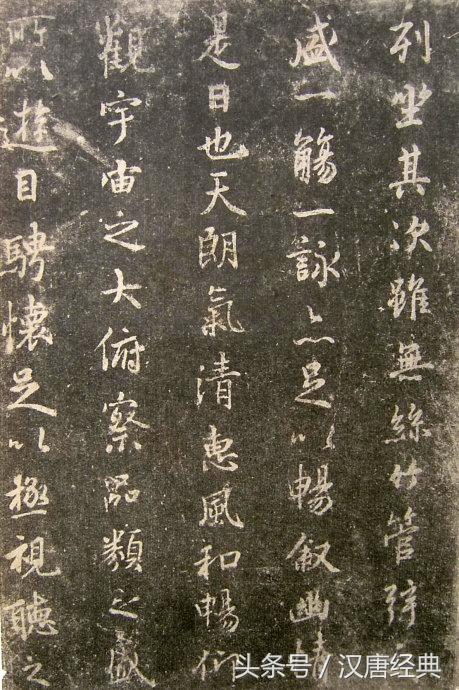 列坐其次雖無絲竹管弦
盛一觴一詠亦足以暢叙幽情
是日也天朗氣清惠風和暢仰
觀宇宙之大俯察品類之盛
所以遊目騁懷足以極視聽之
头条号 / 汉唐经典